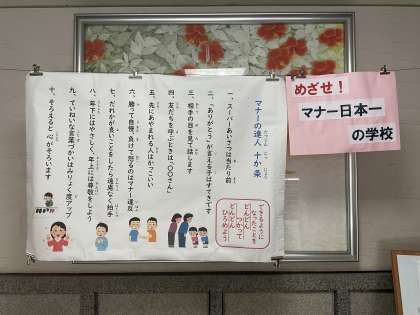 めざせ！
マナー日本一
の学校
マナーの達人　十か条
一、スーパーあいさつは当たり前
二、「ありがとう」が言える子はすてきです
三、相手の目を見て話します
四、友だちを呼ぶときは「〇〇さん」
五、先にあやまれる人はかっこいい
六、勝って自慢、負けて怒るのはマナー違反
七、だれかが良いことをしたら遠慮なく拍手
八、年下にはやさしく、年上には尊敬をしよう
九、ていねいな言葉づかいはみりょく度アップ
十、そろえると心がそろいます
できるように
なったことを
どんどん
つかって
どんどん
ひろめよう